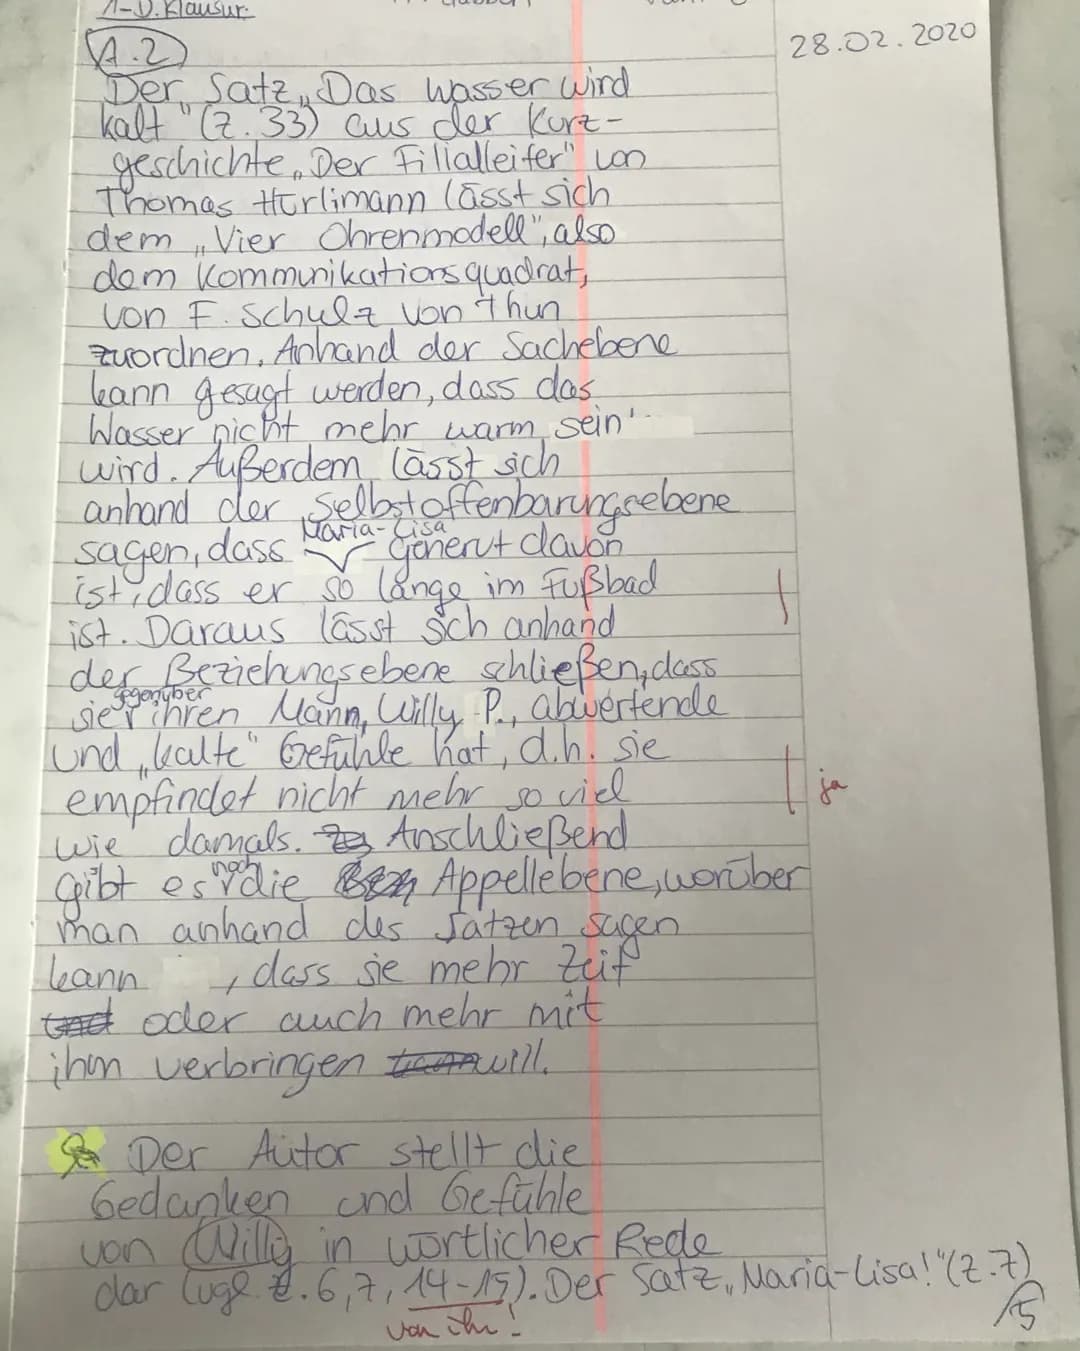 1-D. Klausur
28.02.2020
A.2
Der Satz „Das Wasser wird
kalt" (Z. 33) aus der Kurz-
geschichte „Der Filialleiter" von
Thomas Hürlimann lässt sich
dem „Vier Ohrenmodell", also
dem Kommunikationsquadrat,
von F. Schulz von Thun
zuordnen. Anhand der Sachebene
kann gesagt werden, dass das
Wasser nicht mehr warm sein
wird. Außerdem lässt sich
anhand der Selbstoffenbarungsebene
Maria-Lisa
sagen, dass generut davon
ist, dass er so lange im Fußbad
ist. Daraus lässt sich anhand
der Beziehungsebene schließen, dass
gegenüber
sie ihren Mann, Willy P., abwertende
und „kalte" Gefühle hat, d.h. sie
empfindet nicht mehr so viel
ja
wie damals. Anschließend
noch
gibt es die Appellebene, worüber
man anhand des Satzen sagen
kann , dass sie mehr Zeit
und oder auch mehr mit
ihm verbringen will.
Der Autor stellt die
Gedanken und Gefühle
von Willy in wörtlicher Rede
dar (vgl. Z. 6, 7, 14-15). Der Satz „Maria-Lisa!" (Z. 7)
von ihr!
/5